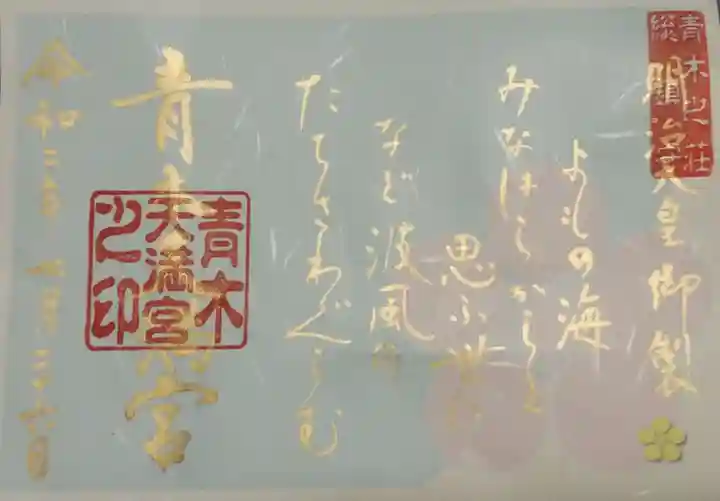 青木之荘
総鎮守
明治天皇御製
よもの海
みなはらからと
思ふ世に
など波風の
たちさわぐらむ
青木天満宮
青木
天満宮
之印
令和三年 七月二十六日